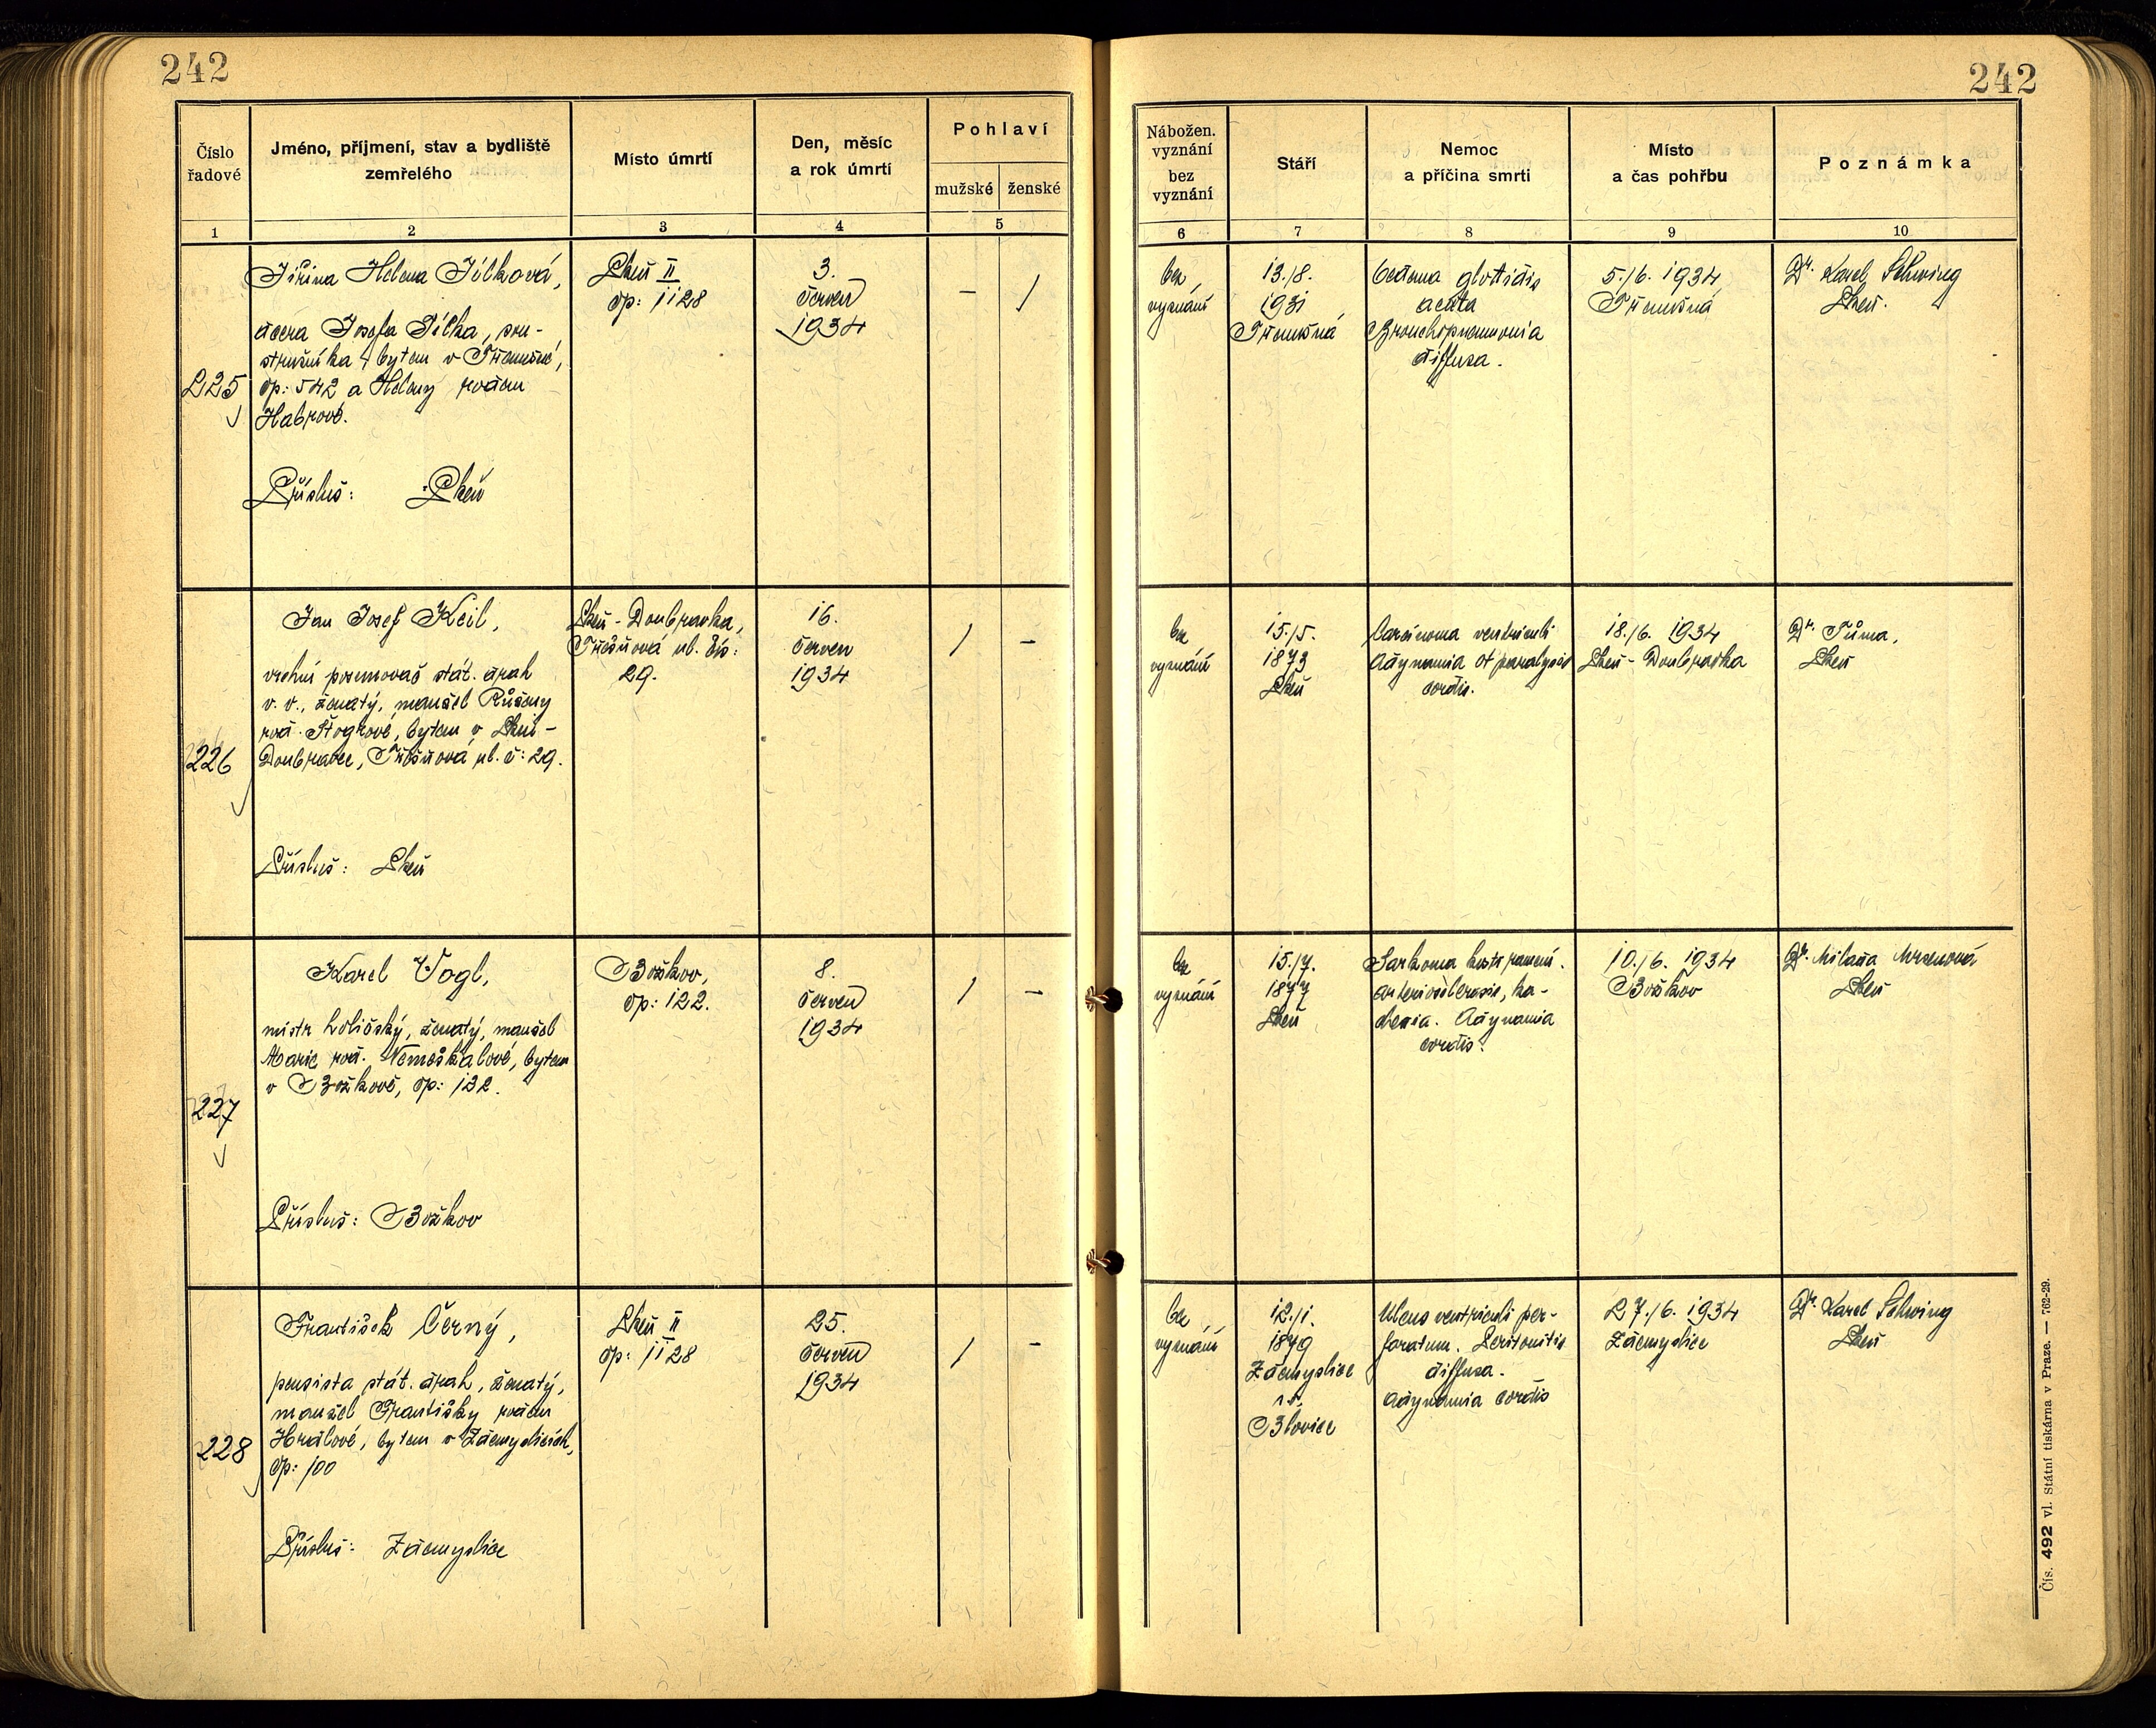 242
Číslo
řadové
Jméno, příjmení, stav a bydliště
zemřelého
Místo úmrtí
Den, měsíc
a rok úmrtí
Pohlaví
mužské
ženské
1
2
3
4
5
225
Jiřina Helena Jílková,
dcera Josefa Jílka, sou-
stružníka, bytem v Třemošné,
čp: 542 a Heleny rozen
Habrové.
Přísluš: Plzeň
Plzeň II
čp: 1128
3.
červen
1934
–
/
226
Jan Josef Keil,
vrchní posunovač stát. drah
v. v., ženatý, manžel Růženy
roz. bytem v Plzni -
Doubravce, Třešňová ul. č: 29.
Přísluš: Plzeň
Plzeň - Doubravka,
Třešňová ul. čís:
29.
16.
červen
1934
/
–
227
Karel Vogl,
mistr holičský, ženatý, manžel
Marie roz. Nemeškalové, bytem
v Božkově, čp: 122.
Přísluš: Božkov
Božkov,
čp: 122.
8.
červen
1934
/
–
228
František Černý,
pensista stát. drah, ženatý,
manžel Františky rozen
Hrdlové, bytem v Zdemyslicích,
čp: 100
Přísluš: Zdemyslice
Plzeň II
čp: 1128
25.
červen
1934
/
–
242
Nábožen.
vyznání
bez
vyznání
Stáří
Nemoc
a příčina smrti
Místo
a čas pohřbu
Poznámka
6
7
8
9
10
bez
vyznání
13./8.
1931
Třemošná
Oedema glottidis
acuta
Bronchopneumonia
diffusa.
5./6. 1934
Třemošná
Dr. Karel Schwing
Plzeň.
bez
vyznání
15./5.
1873
Plzeň
Carcinoma ventriculi
Adynamia et paralysis
cordis.
18./6. 1934
Plzeň - Doubravka
Dr. Tůma,
Plzeň
bez
vyznání
15./7.
1877
Plzeň
Sarkoma kosti ramení.
Arteriosklerosis, ka-
chexia. Adynamia
cordis.
10./6. 1934
Božkov
Dr. Milada
Plzeň
bez
vyznání
12./1.
1879
Zdemyslice
Blovice
Ulcus ventriculi per-
foratum. Peritonitis
diffusa.
Adynamia cordis
27./6. 1934
Zdemyslice
Dr. Karel Schwing
Plzeň
Čís. 492 vl. Státní tiskárna v Praze. — 762-29.